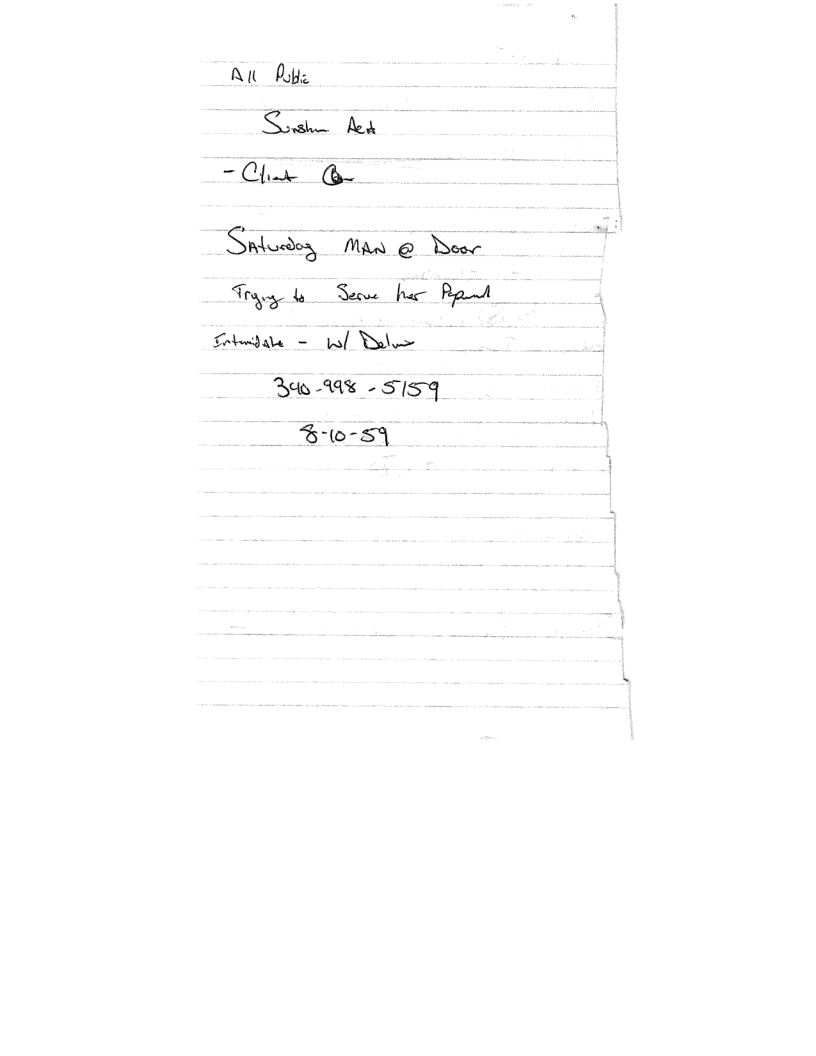 All Public
Sunshine Act
- Client
Saturday MAN @ Door
Trying to Serve her
Intimidate - w/
340-998-5159
8-10-59